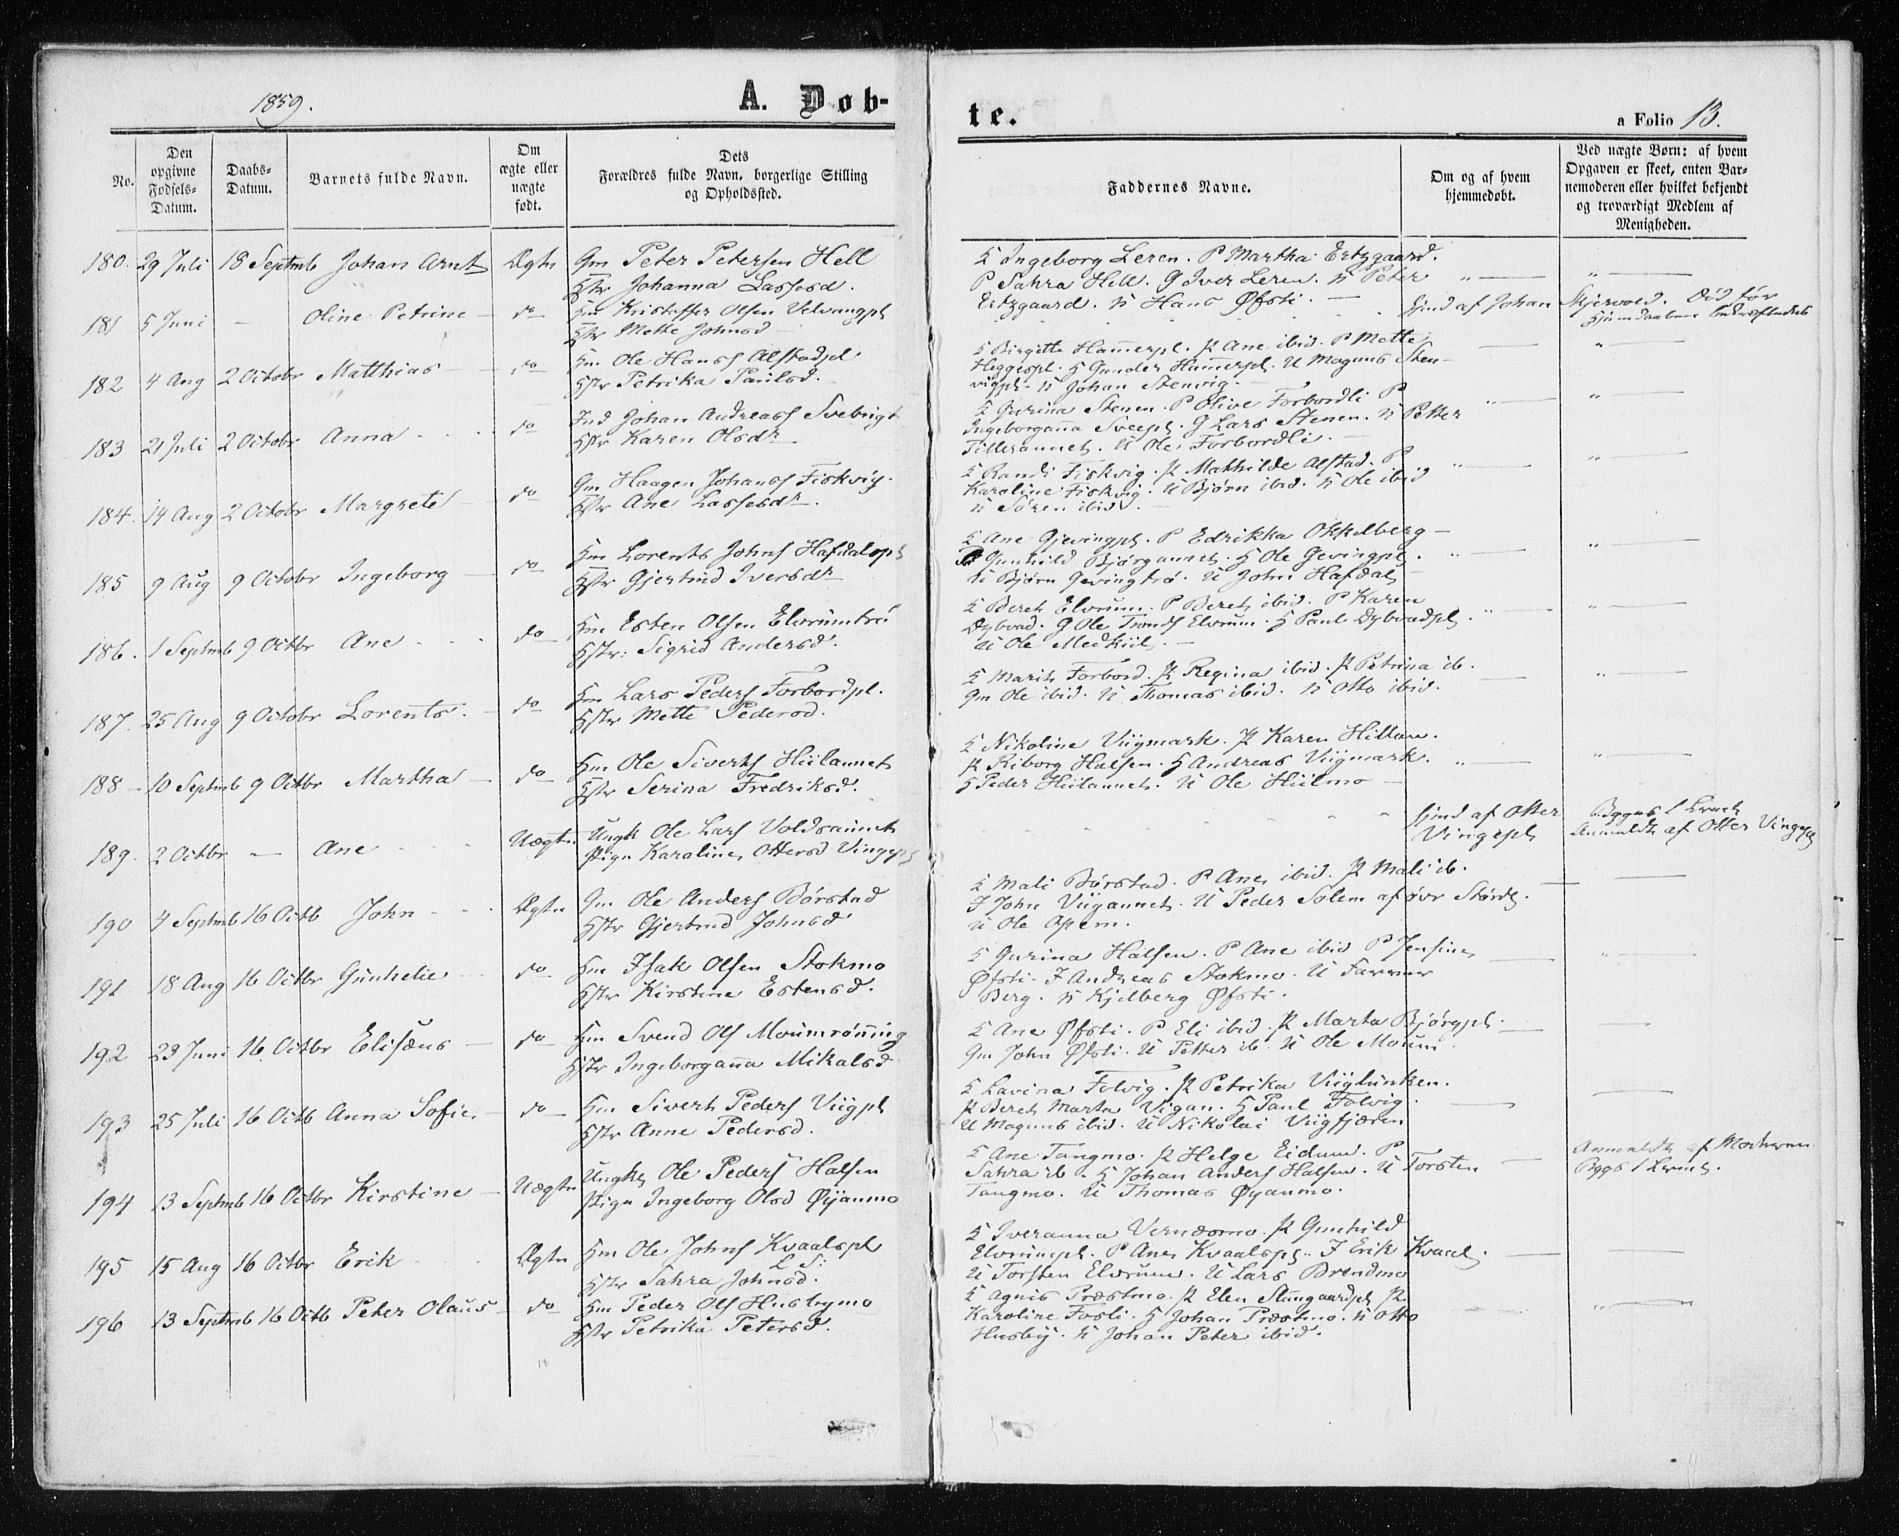 1859.
A. Døb-
te.
a Folio 13.
No.
Den opgivne Fødsels-Datum.
Daabs-Datum.
Barnets fulde Navn.
Om ægte eller uægte født.
Dets Forældres fulde Navn, borgerlige Stilling og Opholdssted.
Faddernes Navne.
Om og af hvem hjemmedøbt.
Ved uægte Børn: af hvem Opgaven er skeet, enten Barnemoderen eller hvilket bekjendt og troværdigt Medlem af Menigheden.
180. 29 Juli 18 Septmb Johan Arnt Ægte Gm Peter Petersen Hell
Hstr Johanna Lassesd.
K Ingeborg Leren. P Martha Ertzgaard.
P Sahra Hell. G Iver Leren. N Peter
Ertzgaard. N Hans Øfsti.
181 5 Juni — Oline Petrine — do Hm Kristoffer Olsen Velvangpl
Hstr Mette Johnsd
hjmd af Johan Skjervold. Død før
Hjemdaaben
182 4 Aug 2 Octobr Matthias — do Hm Ole Hansf Alstadpl.
Hstr Petrika Paulsd.
K Birgitte Hamerpl. P Ane ibid. P Mette
Heggespl. H Gunder Hamerpl. U Magnus Sten-
vigpl. N Johan Stenvig.
183 21 Juli 2 Octobr Anna do Ind Johan Andreasf
Hstr Karen Olsdr
K Gurina Stenen. P Olive Forbordli P
Ingeborgana Sveepl. G Lars Stenen. N Petter
Tilleraunet. U Ole Forbordli.
184. 14 Aug 2 Octobr Margrete do Gm Haagen Johansf Fiskvig.
Hstr Ane Lassesdr.
K Randi Fiskvig. P Mathilde Alstad. P
Karoline Fiskvig. U Bjørn ibid. N Ole ibid
N Sören ibid.
185 9 Aug 9 Octobr Ingeborg — do Hm Lorents Johnsf Hafdalspl
Hstr Gjertrud Iversdr
K Ane Gjevingpl. P Edrikka Okkelberg —
P Gunhild Bjørgannet. H Ole Gevingpl.
U Bjørn Gevingtrø. U John Hafdal
186. 1 Septmb 9 Octbr Ane do Hm Esten Olsen Elvrumtrø
Hstr: Sigrid Andersd.
K Beret Elvrum. P Beret ibid. P Karen
Dybvad. G Ole Trondsf Elvrum. H Paul Dybvadpl.
U Ole Medkiil.
187. 25 Aug 9 Octobr Lorents. do Hm Lars Pedersf Forbordpl.
Hstr Mette Pedersd.
K Marit Forbord. P Regina ibid. P Petrina ib.
Gm Ole ibid. N Thomas ibid. N Otto ibid.
188 10 Septmb 9 Octbr Martha — do Hm Ole Sivertsf Hiilaunet
Hstr Serina Fredriksd.
K Nikoline Viigmark. P Karen Hiilan.
P Riborg Halsen. H Andreas Viigmark.
H Peder Hiilaunet. U Ole Hiilmo
189. 2 Octbr — Ane Uægte Ungk Ole Larsf Voldsaunet
Pige Karoline Ottersd Vingepl
hjmd af Otter
Vingepl
Anmeldt af Otter Vingepl
190 4 Septmb 16 Octb John Ægte Gm Ole Andersf Børstad
Hstr Gjertrud Johnsd
K Mali Børstad. P Ane ibid. P Mali ib.
I John Viigaunet. U Peder Solem af øvr Størd.
U Ole Opem.
191 18 Aug 16 Octbr Gunhelie do Hm Isak Olsen Stokmo
Hstr Kirstine Estensd.
K Gurina Halsen. P Ane ibid P Jensine
Øfsti. I Andreas Stokmo. U
Berg. N Kjelberg Øfsti.
192 23 Juni 16 Octbr Elisæus — do Hm Svend Olsf Moumrønning
Hstr Ingeborgana Mikalsd
K Ane Øfsti. P Eli ibid. P Marta Bjørgpl.
Gm John Øfsti. U Petter ib. U Ole Moum.
193 25 Juli 16 Octb Anna Sofie. do Hm Sivert Pedersf Viigpl
Hstr Anne Pedersd.
K Lavina Folvig. P Petrika Viiglunken.
P Beret Marta Vigan. H Paul Folvig.
U Magnus ibid. U Nikolai Viigfjæren
194 13 Septmb 16 Octbr Kirstine Uægte Ungk Ole Pedersf Halsen
Pige Ingeborg Olsd Øyanmo
K Ane Tangmo. P Helge Eidum. P
Sahra ib. H Johan Andersf Halsen. U Torsten
Tangmo. U Thomas Øyanmo.
Anmeldt af Moderen
195 15 Aug 16 Octbr Erik Ægte Hm Ole Johnsf Kvaalspl
Hstr Sahra Johnsd.
K Iveranna Værnesmo. P Gunhild
Elvrumpl. P Ane Kvaalspl. I Erik Kvaal.
U Torsten Elvrum. U Lars Brendmo
196 13 Septmb 16 Octb Peter Olaus — do Hm Peder Olsf Husbymo
Hstr Petrika Petersd.
K Agnis Præstmo. P Elen Stungaardpl P
Karoline Fosli. H Johan Præstmo. N Otto
Husby. N Johan Peter ibid.